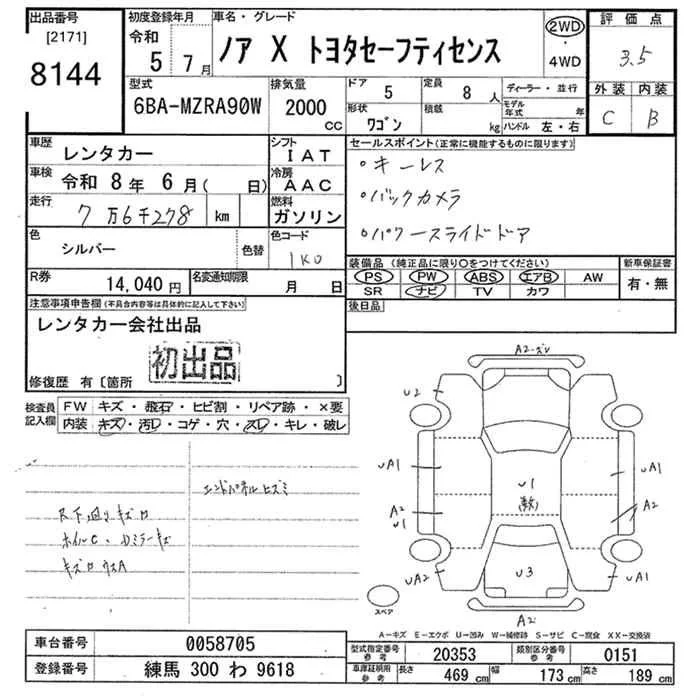 出品番号 [2171] 8144
初度登録年月 令和 5年 7月
車名・グレード ノア X トヨタセーフティセンス
2WD・4WD
評価点 3.5
外装 C 内装 B
型式 6BA-MZRA90W
排気量 2000 CC
ドア 5
定員 8人
形状 ワゴン
積載 kg
ディーラー・並行
モデル年式 年
ハンドル 左・右
車歴 レンタカー
シフト IAT
車検 令和 8年 6月( 日)
冷房 AAC
走行 7万6千278 km
燃料 ガソリン
色 シルバー 色替
色コード 1K0
R券 14,040円
名変通知期限 月 日
セールスポイント(正常に機能するものに限ります)
・キーレス
・バックカメラ
・パワースライドドア
装備品(純正品に限り○をつけてください)
PS PW ABS エアB AW
SR ナビ TV カワ
新車保証書 有・無
後日品
注意事項申告欄(不具合内容等は具体的に記入して下さい)
レンタカー会社出品
初出品
修復歴 有〔箇所 〕
検査員記入欄
FW キズ・飛石・ヒビ割・リペア跡・×要
内装 キズ・汚レ・コゲ・穴・スレ・キレ・破レ
エンドパネルヒズミ
R下廻りキズロ
ホイルC・Dミラーキズ
A2-ズレ
U2
UA1 UA1
U1
A2 U1 A2
UA2 U3 UA1
A2
スペア
A-キズ E-エクボ U-凹み W-補修跡 S-サビ C-腐食 XX-交換済
車台番号 0058705
登録番号 練馬 300 わ 9618
型式指定番号 参考 20353
類別区分番号 参考 0151
車庫証明用 参考 長さ 469cm 幅 173cm 高さ 189cm